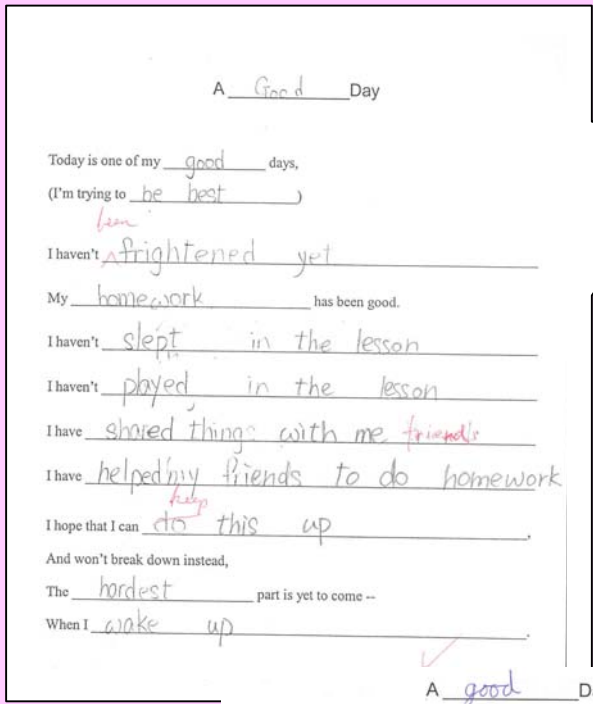 A Good Day
Today is one of my good days,
(I'm trying to be best)
been
I haven't ^ frightened yet
My homework has been good.
I haven't slept in the lesson
I haven't played in the lesson
I have shared things with me friends
I have helped my friends to do homework
keep
I hope that I can do this up,
And won't break down instead,
The hardest part is yet to come --
When I wake up.
A good D